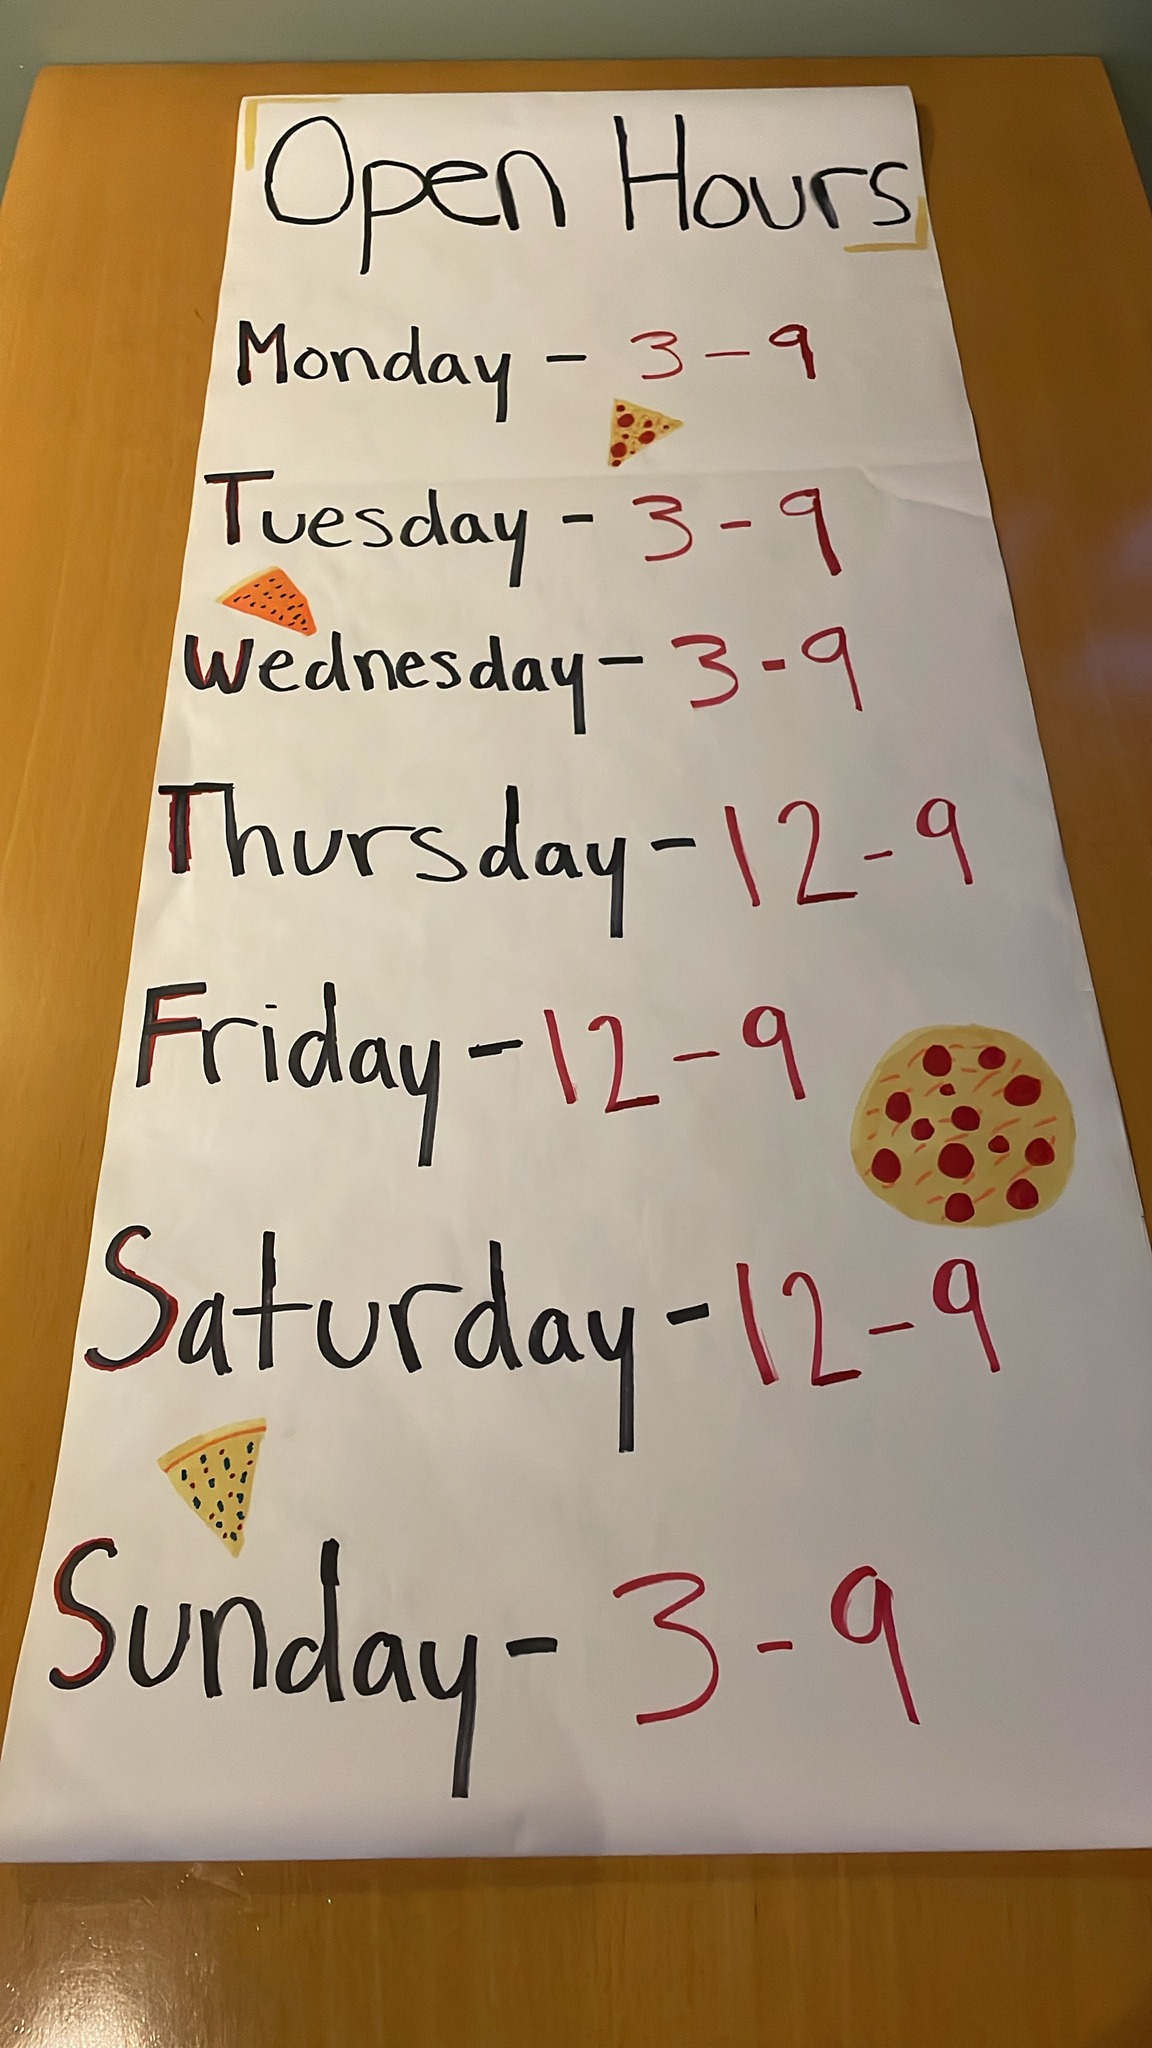 Open Hours
Monday - 3-9
Tuesday - 3-9
Wednesday - 3-9
Thursday - 12-9
Friday - 12-9
Saturday - 12-9
Sunday - 3-9